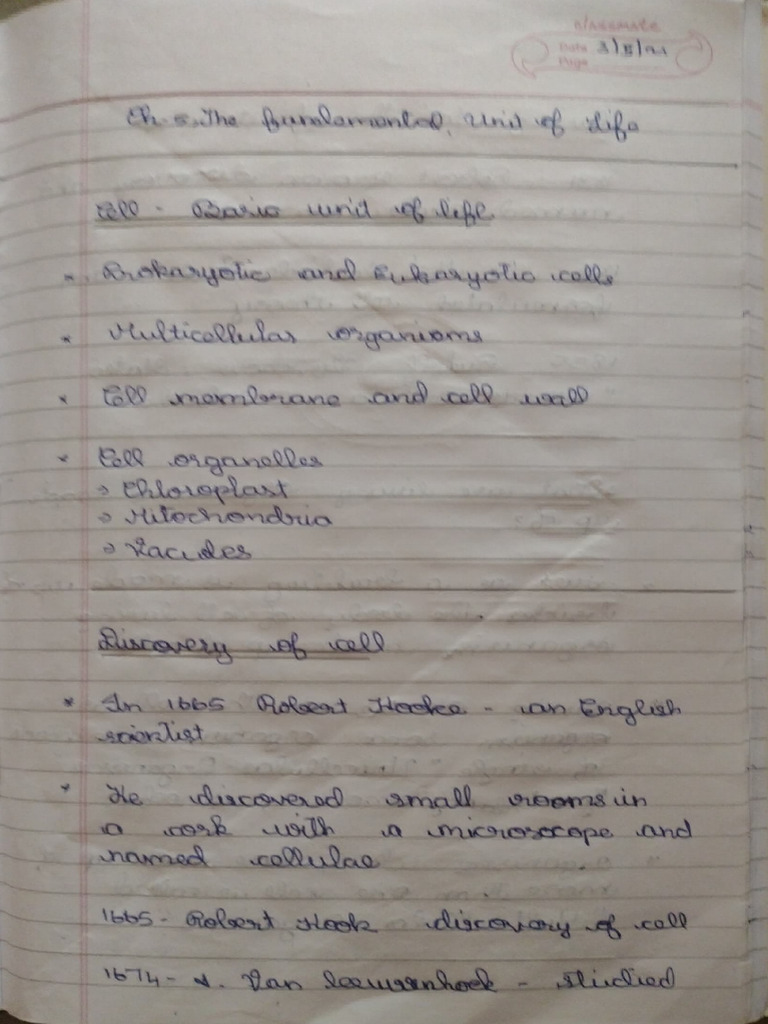 classmate
Date 3/5/21
Page
Ch. 5. The fundamental Unit of life
Cell - Basic unit of life
* Prokaryotic and Eukaryotic cells
* Multicellular organisms
* Cell membrane and cell wall
* Cell organelles
→ Chloroplast
→ Mitochondria
→ Vacuoles
Discovery of cell
* In 1665 Robert Hooke - an English
scientist
* He discovered small rooms in
a cork with a microscope and
named cellulae
1665 - Robert Hook discovery of cell
1674 - A. Van Leewenhoek - studied